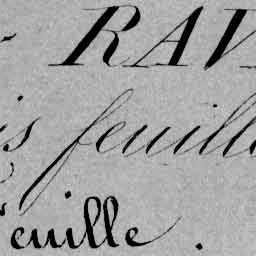 RAV
is feuill
euille .